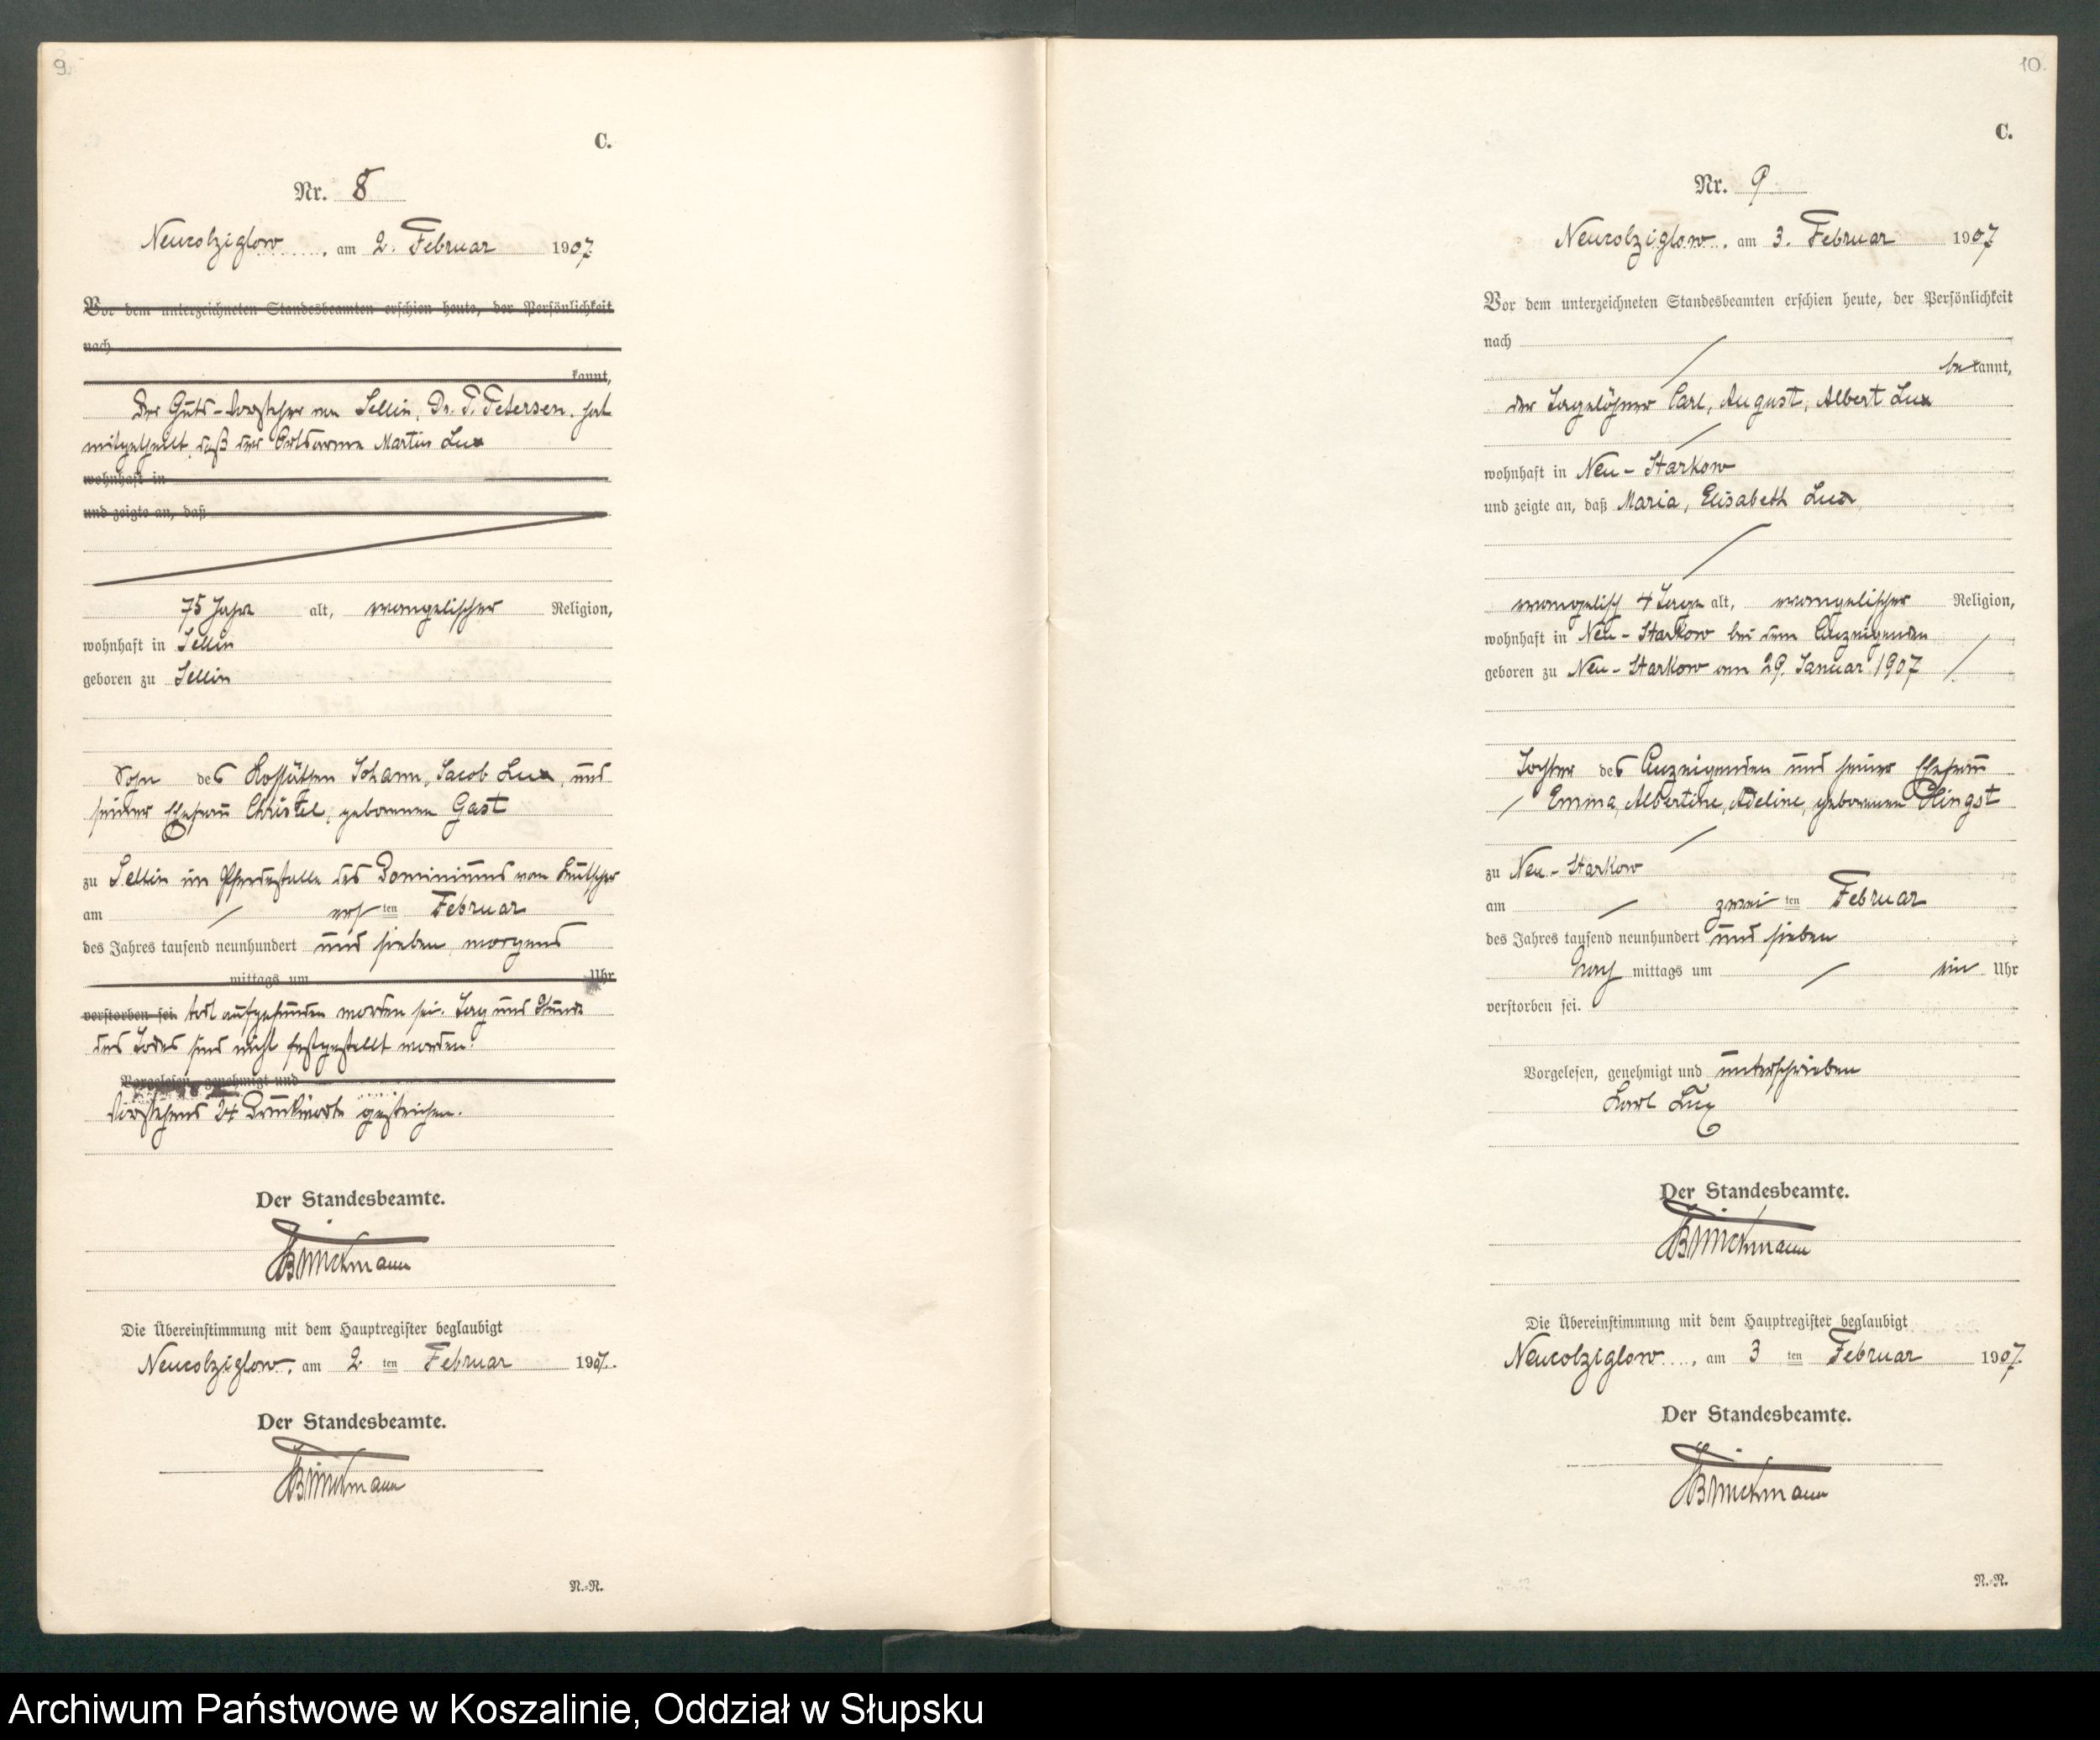 9.
C.
Nr. 8
Neucolziglow, am 2. Februar 1907
Vor dem unterzeichneten Standesbeamten erschien heute, der Persönlichkeit
nach
kannt,
Der Guts-Vorsteher von Sellin, Dr. P. Petersen. hat
mitgetheilt, daß der Ortsarme Martin Lux
wohnhaft in
und zeigte an, daß
75 Jahre alt, evangelischer Religion,
wohnhaft in Sellin
geboren zu Sellin
Sohn des Johann, Jacob Lux, und
seiner Ehefrau Christel, geborenen Gast
zu Sellin im Pferdestalle des Dominiums vom Kutscher
am ersten Februar
des Jahres tausend neunhundert und sieben, morgens
mittags um Uhr
verstorben sei todt aufgefunden worden sei. Tag und Stunde
des Todes sind nicht festgestellt worden.
Vorgelesen, genehmigt und
Vorstehend 24 Druckworte gestrichen.
Der Standesbeamte.
Brinckmann
Die Übereinstimmung mit dem Hauptregister beglaubigt
Neucolziglow, am 2 ten Februar 1907.
Der Standesbeamte.
Brinckmann
N.-R.
10.
C.
Nr. 9
Neucolziglow, am 3. Februar 1907
Vor dem unterzeichneten Standesbeamten erschien heute, der Persönlichkeit
nach
bekannt,
der Tagelöhner Carl, August, Albert Lux
wohnhaft in Neu-Starkow
und zeigte an, daß Maria, Elisabeth Lux,
evangelisch 4 Tage alt, evangelischer Religion,
wohnhaft in Neu-Starkow bei dem Anzeigenden
geboren zu Neu-Starkow am 29. Januar 1907
Tochter des Anzeigenden und seiner Ehefrau
Emma, Albertine, Adeline, geborenen Hingst
zu Neu-Starkow
am zwei ten Februar
des Jahres tausend neunhundert und sieben
Nach mittags um ein Uhr
verstorben sei.
Vorgelesen, genehmigt und unterschrieben
Karl Lux
Der Standesbeamte.
Brinckmann
Die Übereinstimmung mit dem Hauptregister beglaubigt
Neucolziglow, am 3 ten Februar 1907.
Der Standesbeamte.
Brinckmann
N.-R.
Archiwum Państwowe w Koszalinie, Oddział w Słupsku